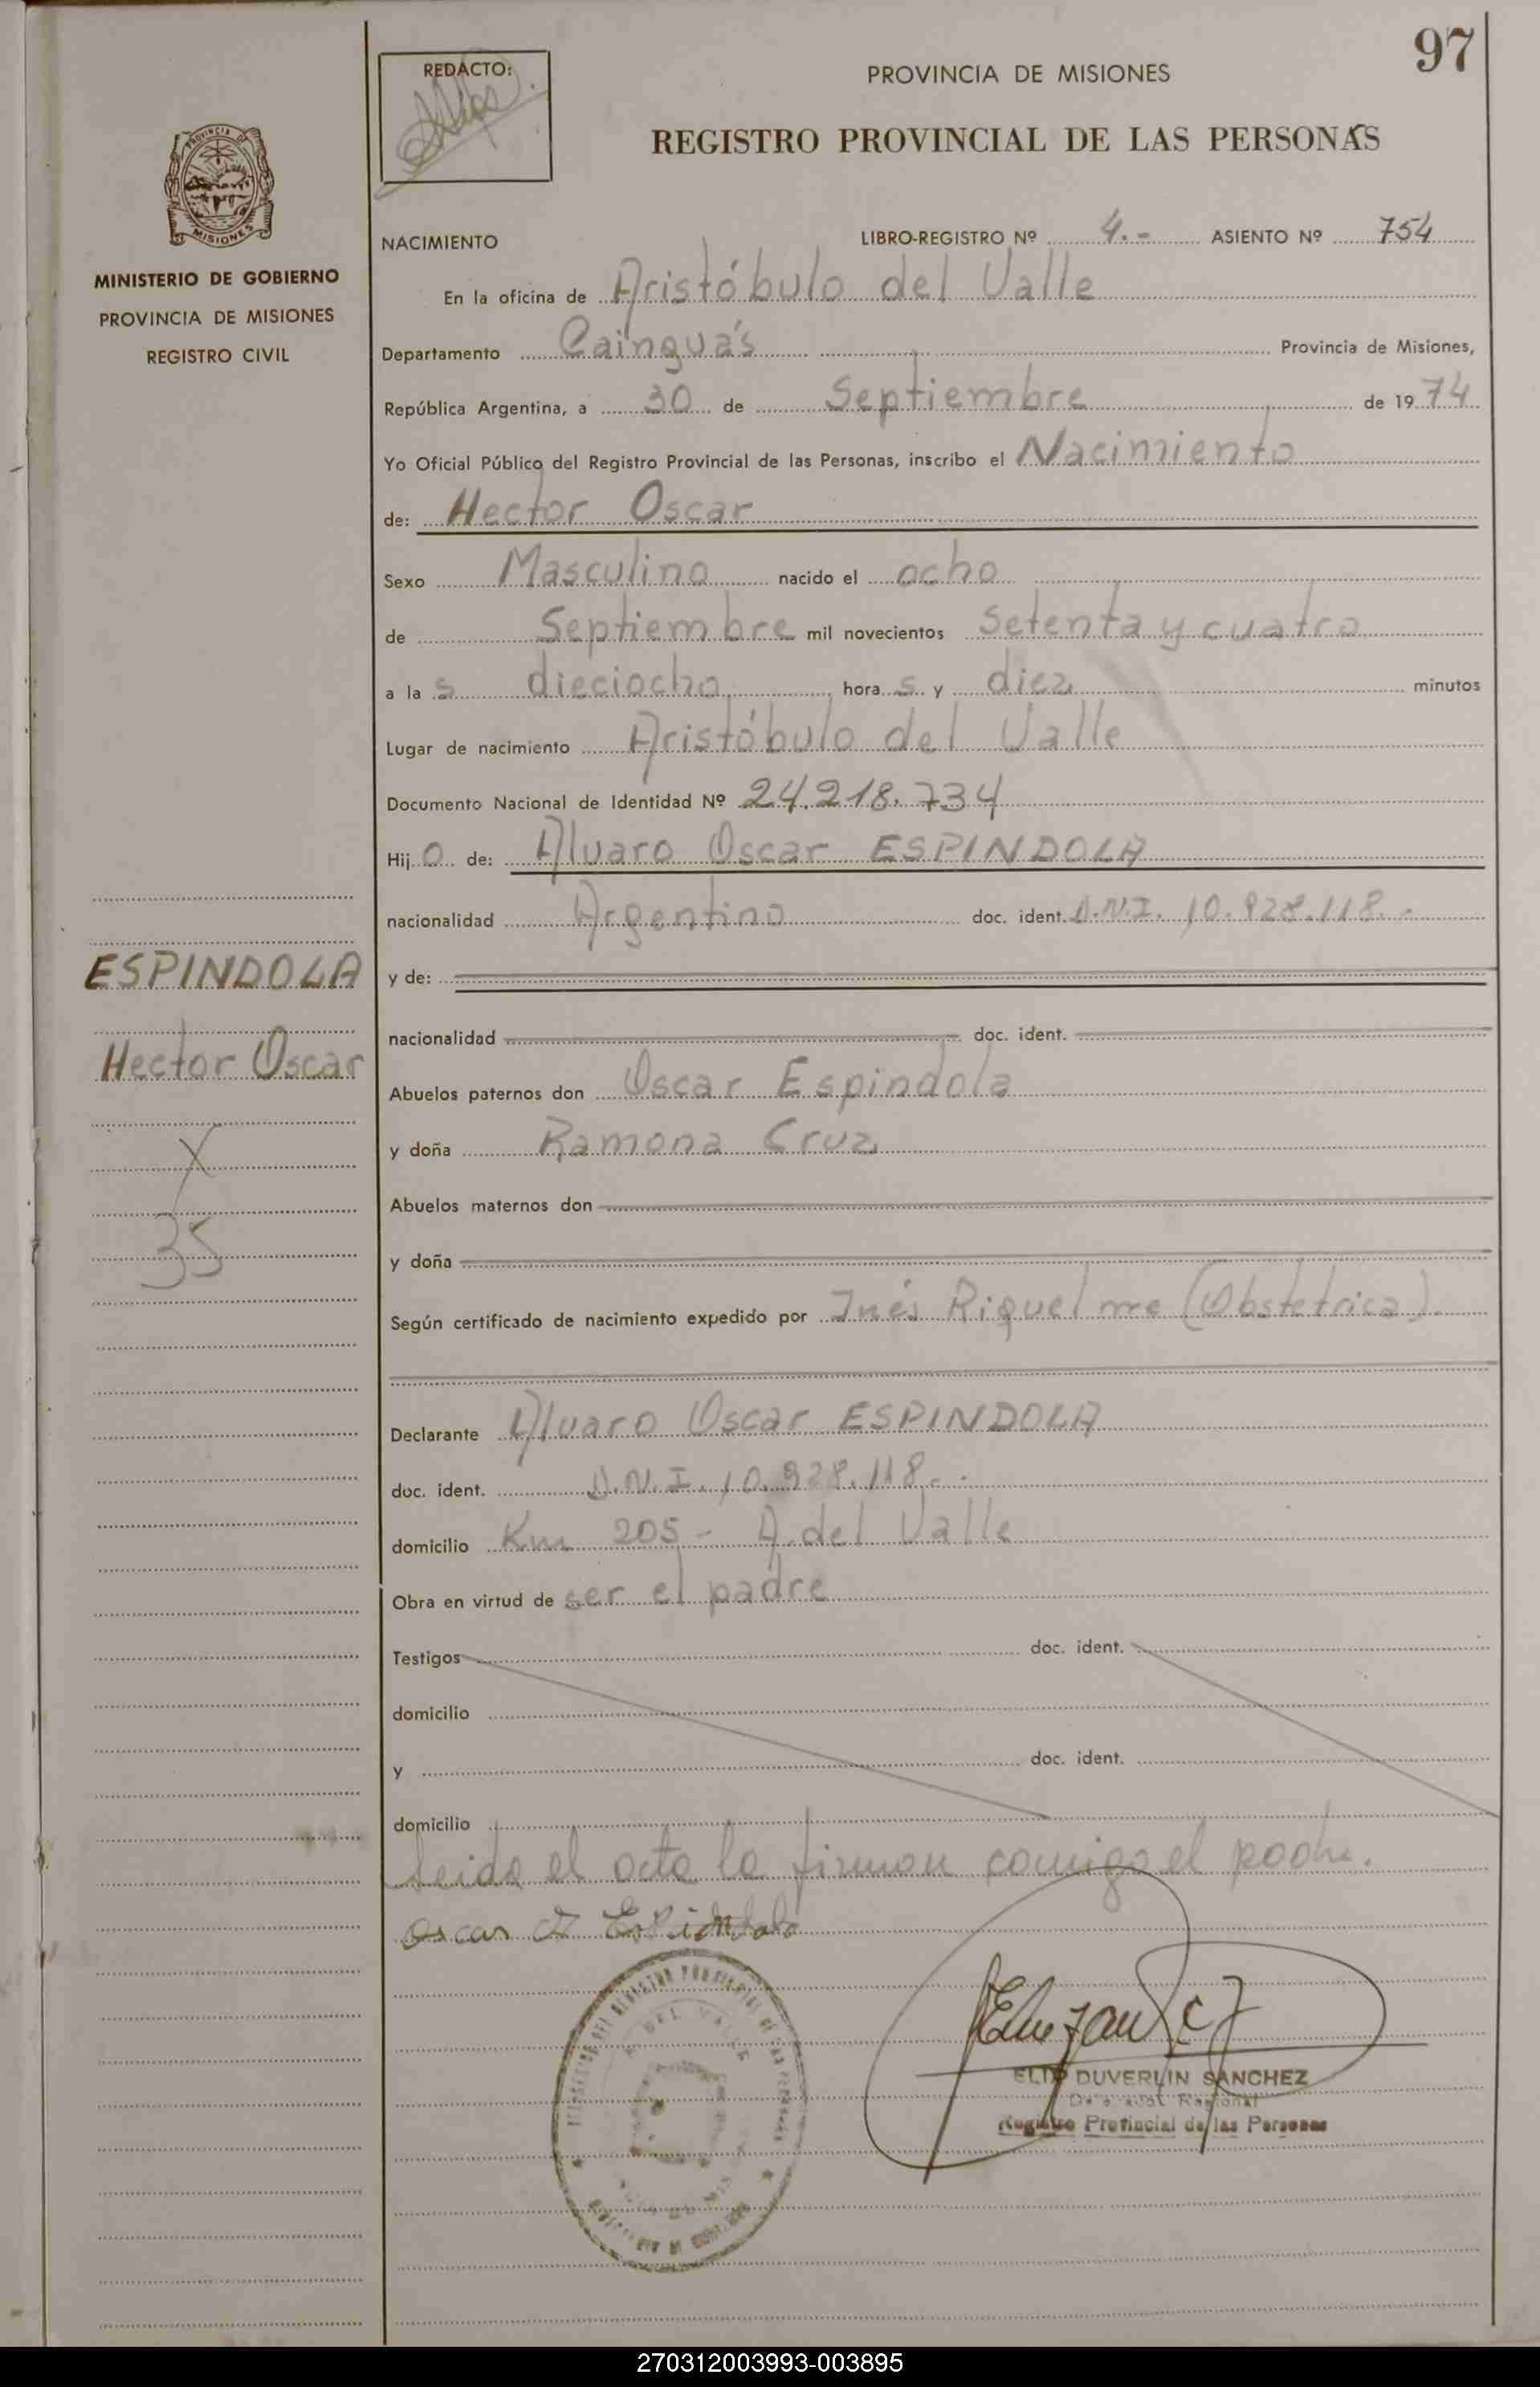 97
REDACTO:
PROVINCIA DE MISIONES
REGISTRO PROVINCIAL DE LAS PERSONAS
PROVINCIA DE
MISIONES
MINISTERIO DE GOBIERNO
PROVINCIA DE MISIONES
REGISTRO CIVIL
NACIMIENTO LIBRO-REGISTRO Nº 4.- ASIENTO Nº 754
En la oficina de Aristóbulo del Valle
Departamento Cainguás Provincia de Misiones,
República Argentina, a 30 de Septiembre de 1974
Yo Oficial Público del Registro Provincial de las Personas, inscribo el Nacimiento
de: Hector Oscar
Sexo Masculino nacido el ocho
de Septiembre mil novecientos setenta y cuatro
a la s dieciocho hora s y diez minutos
Lugar de nacimiento Aristóbulo del Valle
Documento Nacional de Identidad Nº 24.218.734
Hij o de: Alvaro Oscar ESPINDOLA
nacionalidad Argentino doc. ident. D.N.I. 10.928.118.-
ESPINDOLA
y de:
nacionalidad doc. ident.
Hector Oscar
Abuelos paternos don Oscar Espindola
y doña Ramona Cruz
X
Abuelos maternos don
35
y doña
Según certificado de nacimiento expedido por Inés Riquelme (Obstetrica).
Declarante Alvaro Oscar ESPINDOLA
doc. ident. D.N.I. 10.928.118.-
domicilio Km 205 - A. del Valle
Obra en virtud de ser el padre
Testigos doc. ident.
domicilio
y doc. ident.
domicilio
Leida el acta la firman comigo el padre.
Oscar A Espindola
ELIO DUVERLIN SANCHEZ
Delegado Regional
Registro Provincial de las Personas
270312003993-003895